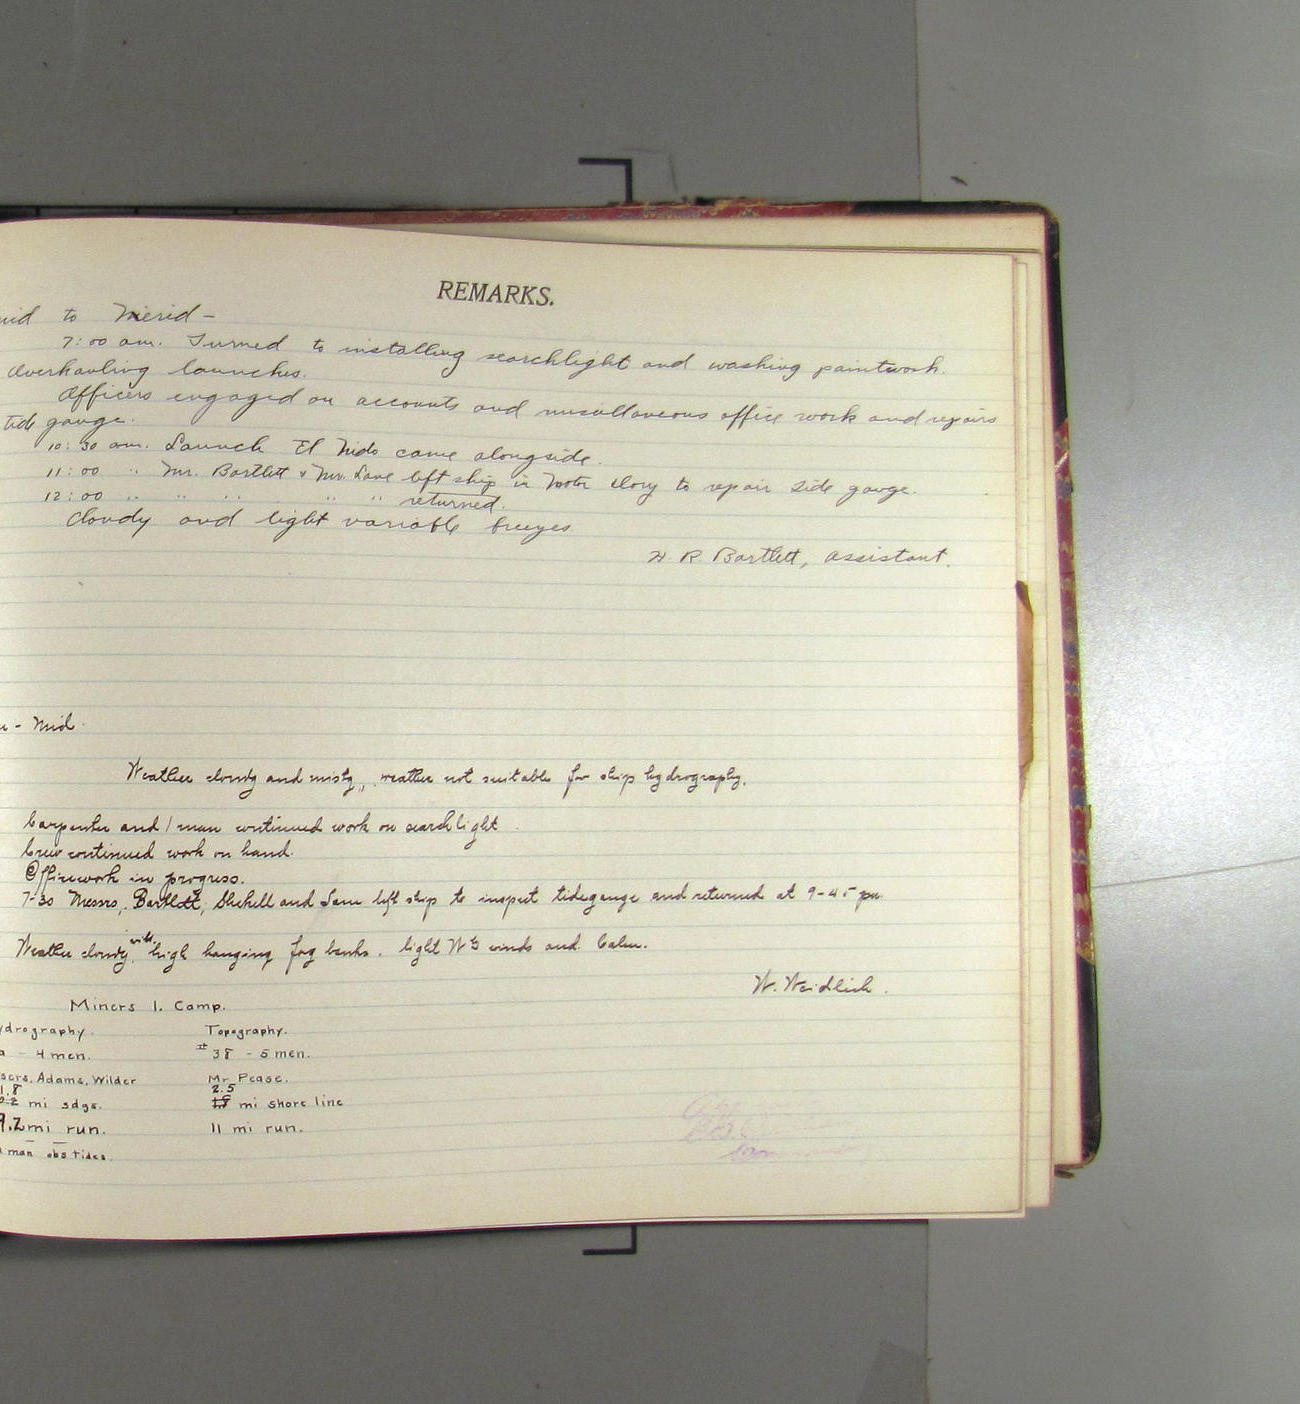 REMARKS.
to Merid –
7:00 am. Turned to installing searchlight and washing paintwork.
Overhauling launches.
Officers engaged on accounts and miscellaneous office work and repairs
tide gauge.
10:30 am. Launch El Nido came alongside.
11:00 " Mr. Bartlett & Mr. Lane left ship in motor dory to repair tide gauge.
12:00 " " " " " returned.
Cloudy and light variable breezes
H R. Bartlett, Assistant.
- Mid.
Weather cloudy and misty, weather not suitable for ship hydrography.
Carpenter and 1 man continued work on searchlight.
Crew continued work on hand.
Officework in progress.
7-30 Messrs, Bartlett, Shekell and Lane left ship to inspect tidegauge and returned at 9-45 pm.
Weather cloudy, with high hanging fog banks. light W'ly winds and Calm.
W. Weidlich.
Miners I. Camp.
ydrography. Topography.
- 4 men. #38 - 5 men.
ssrs. Adams, Wilder Mr. Pease.
1.8 2.5
mi sdgs. mi shore line
9.2 mi run. 11 mi run.
man obs tides.